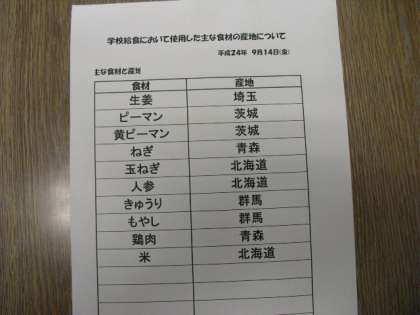 学校給食において使用した主な食材の産地について
平成24年 9月14日(金)
主な食材と産地
食材 産地
生姜 埼玉
ピーマン 茨城
黄ピーマン 茨城
ねぎ 青森
玉ねぎ 北海道
人参 北海道
きゅうり 群馬
もやし 群馬
鶏肉 青森
米 北海道